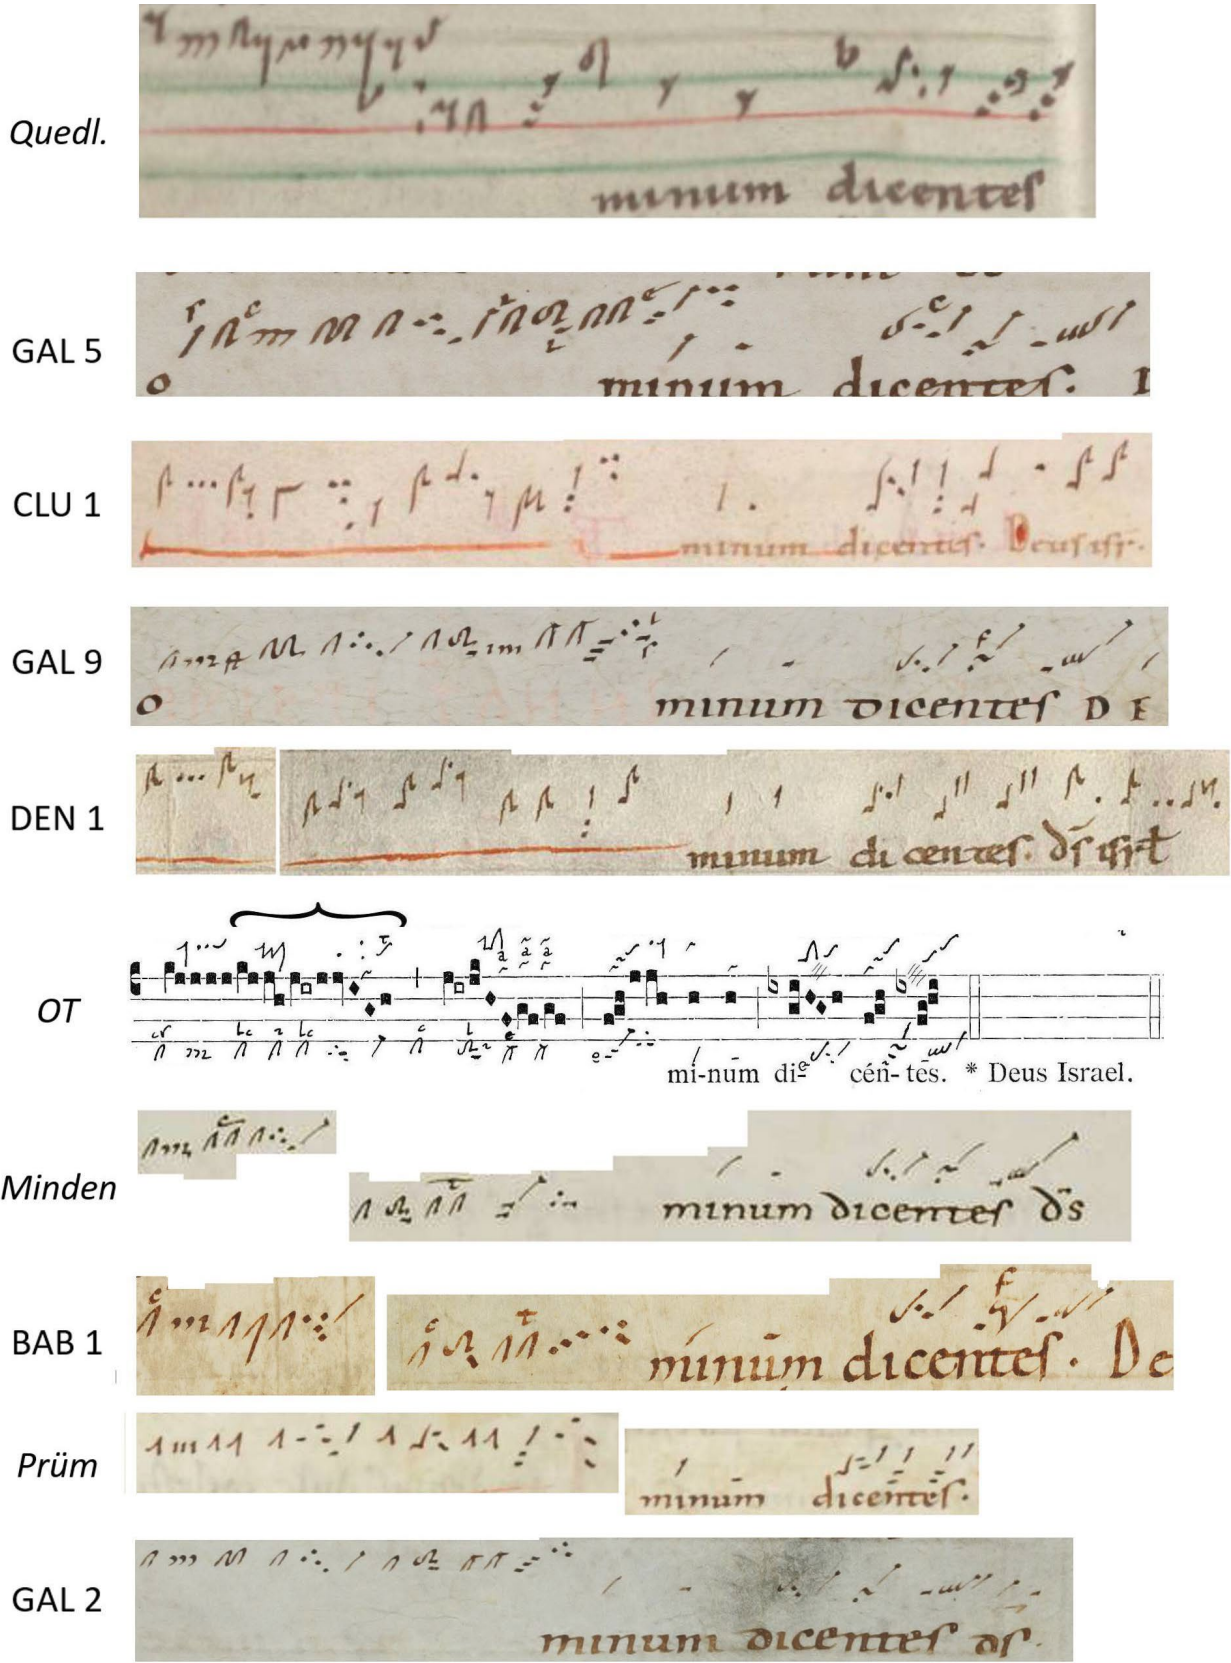 Quedl.
minum dicentes
GAL 5
o
minum dicentes. I
CLU 1
minum dicentes. Deus isr.
GAL 9
o
minum dicentes D E
DEN 1
minum di centes. ds isrl
OT
mí-num di- cén-tes. * Deus Israel.
Minden
minum dicentes ds
BAB 1
minum dicentes. De
Prüm
minum dicentes.
GAL 2
minum dicentes ds.